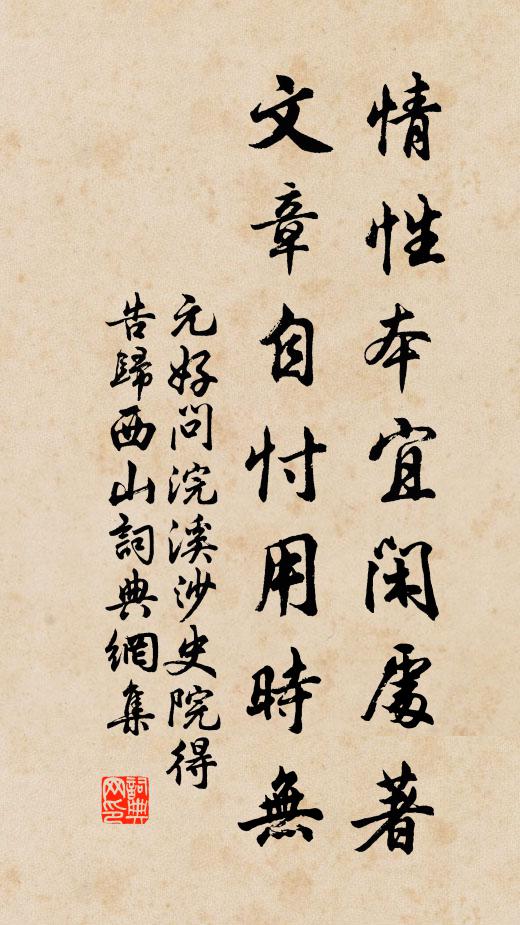 情性本宜閑處著
文章自忖用時無
元好問浣溪沙史院得
告歸西山詞典網集
詞典网印